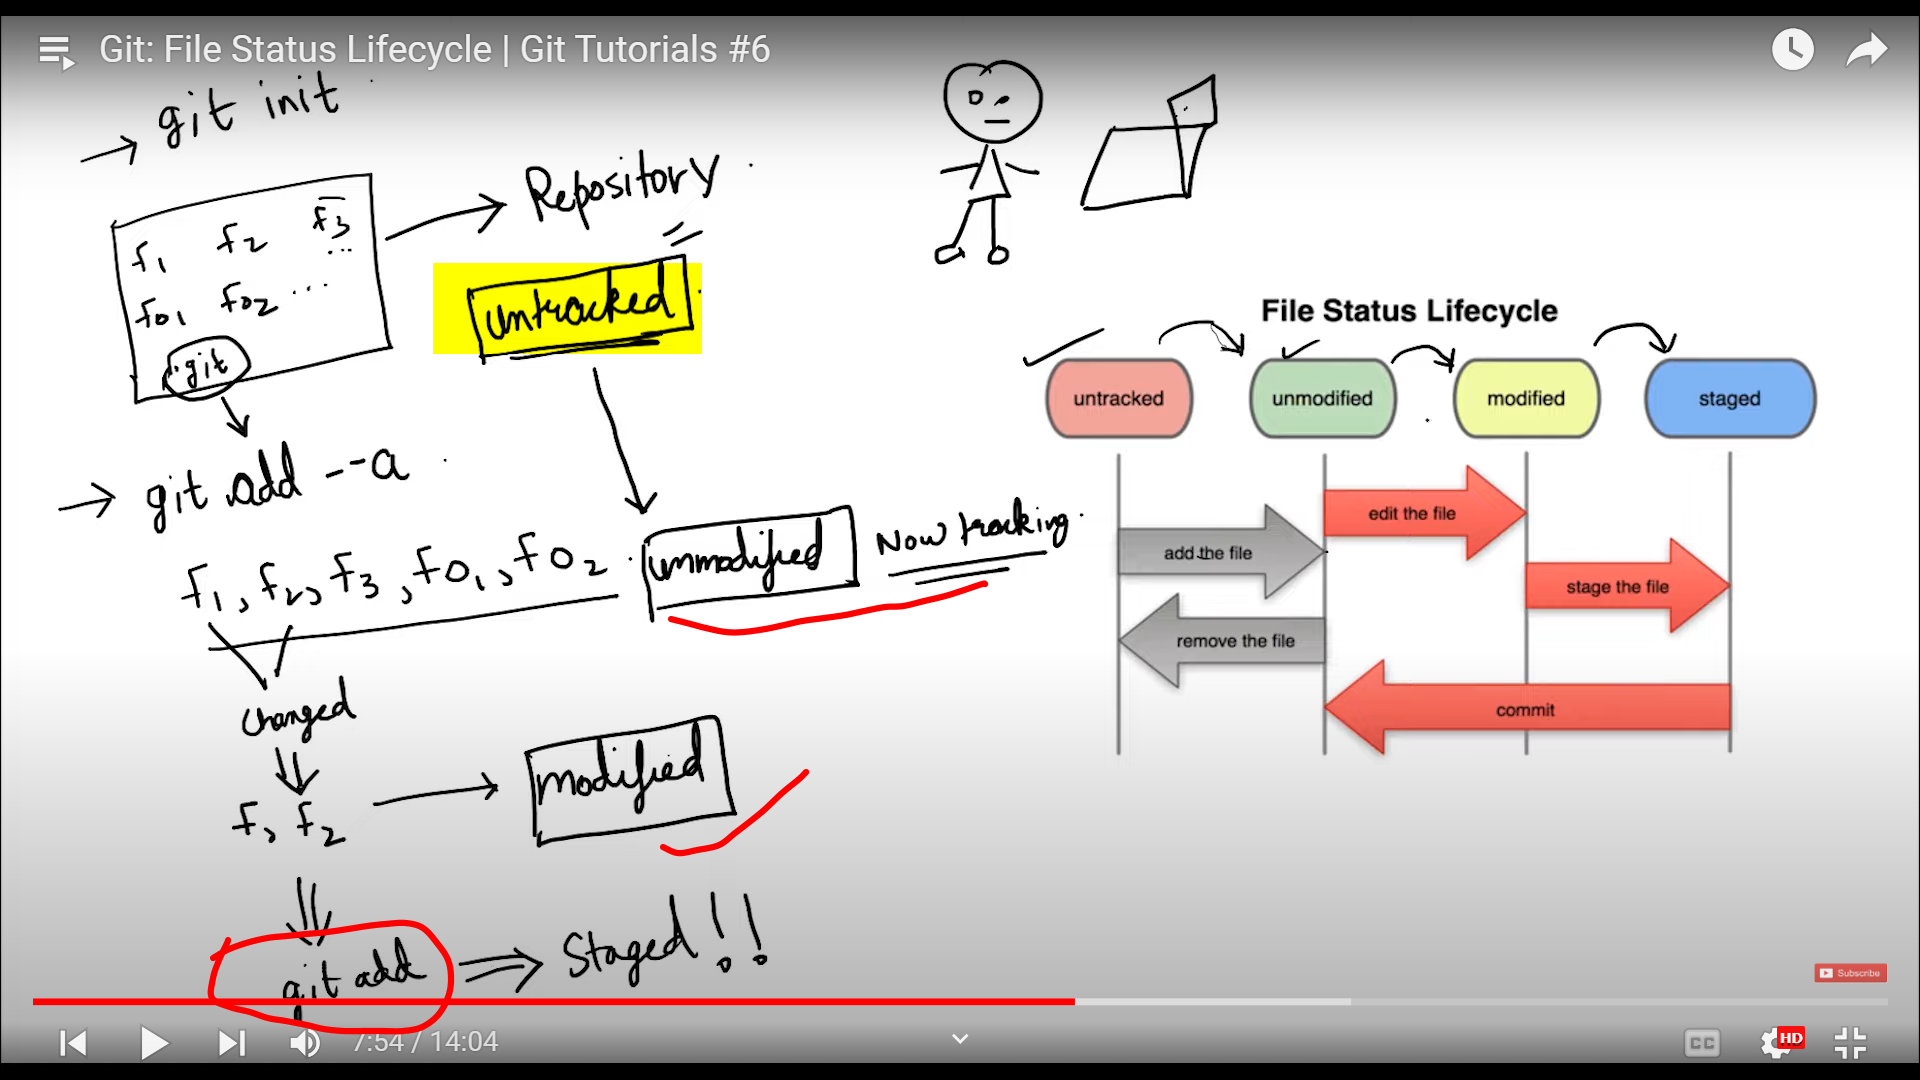 Git: File Status Lifecycle | Git Tutorials #6
→ git init
f1 f2 f3 ...
f01 f02 ...
.git
Repository
untracked
→ git add --a
f1, f2, f3, f01, f02
unmodified
Now tracking.
changed
f1 f2
modified
git add
Staged!!
File Status Lifecycle
untracked
unmodified
modified
staged
edit the file
add the file
stage the file
remove the file
commit
Subscribe
7:54 / 14:04
CC
HD